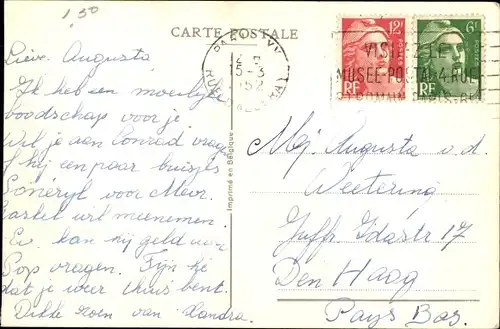 1.50
CARTE POSTALE
Lieve Augusta
Ik heb een moeilijke
boodschap voor je
Wil je aan Conrad vragen
of hij een paar buisjes
Sonéryl voor Mevr.
Kastel wil meenemen.
Ev. kan hij geld aan
Pop vragen. Fijn hè
dat je weer thuis bent.
Dikke zoen van Xandra.
Imprimé en Belgique
5-3
52
VISITEZ LE
MUSEE POSTAL 4 RUE
12F
RF
6F
RF
Mej Augusta v.d.
Weetering
Juffr. Idastr 17
Den Haag
Pays Bas.